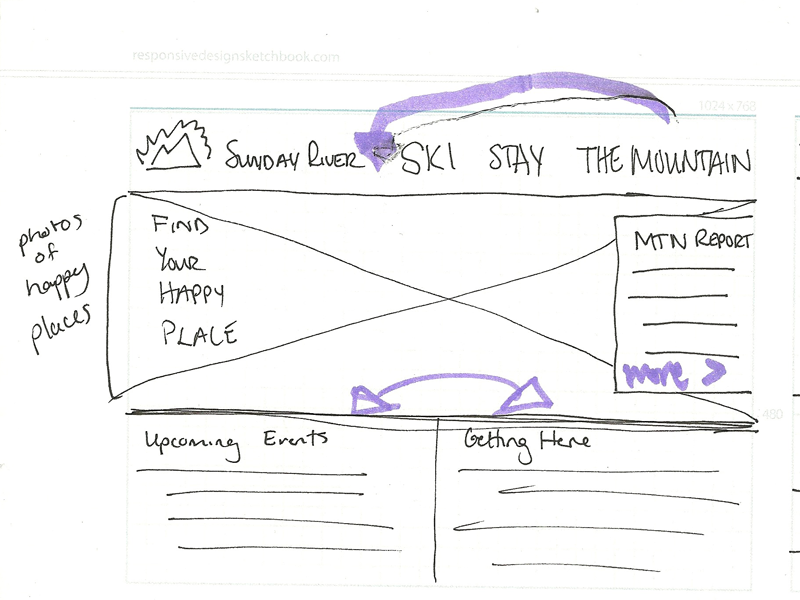 responsivedesignsketchbook.com
1024 x 768
SUNDAY RIVER SKI STAY THE MOUNTAIN
photos
of
happy
places
FIND
YOUR
HAPPY
PLACE
MTN REPORT
more >
480
Upcoming Events
Getting Here